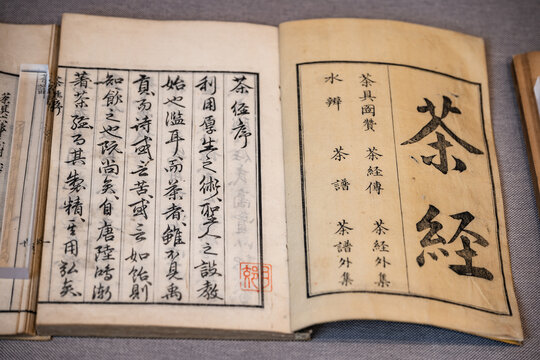 茶経
茶具圖贊　茶経傳　茶経外集
水辨　茶譜　茶譜外集
茶經序
利用厚生之術聖人之設教
始也濫耳而茶者雖不見禹
貢而詩或言苦或言如飴則
知飲之也既尚矣自唐陸鴻漸
著茶經而其製精至用弘矣